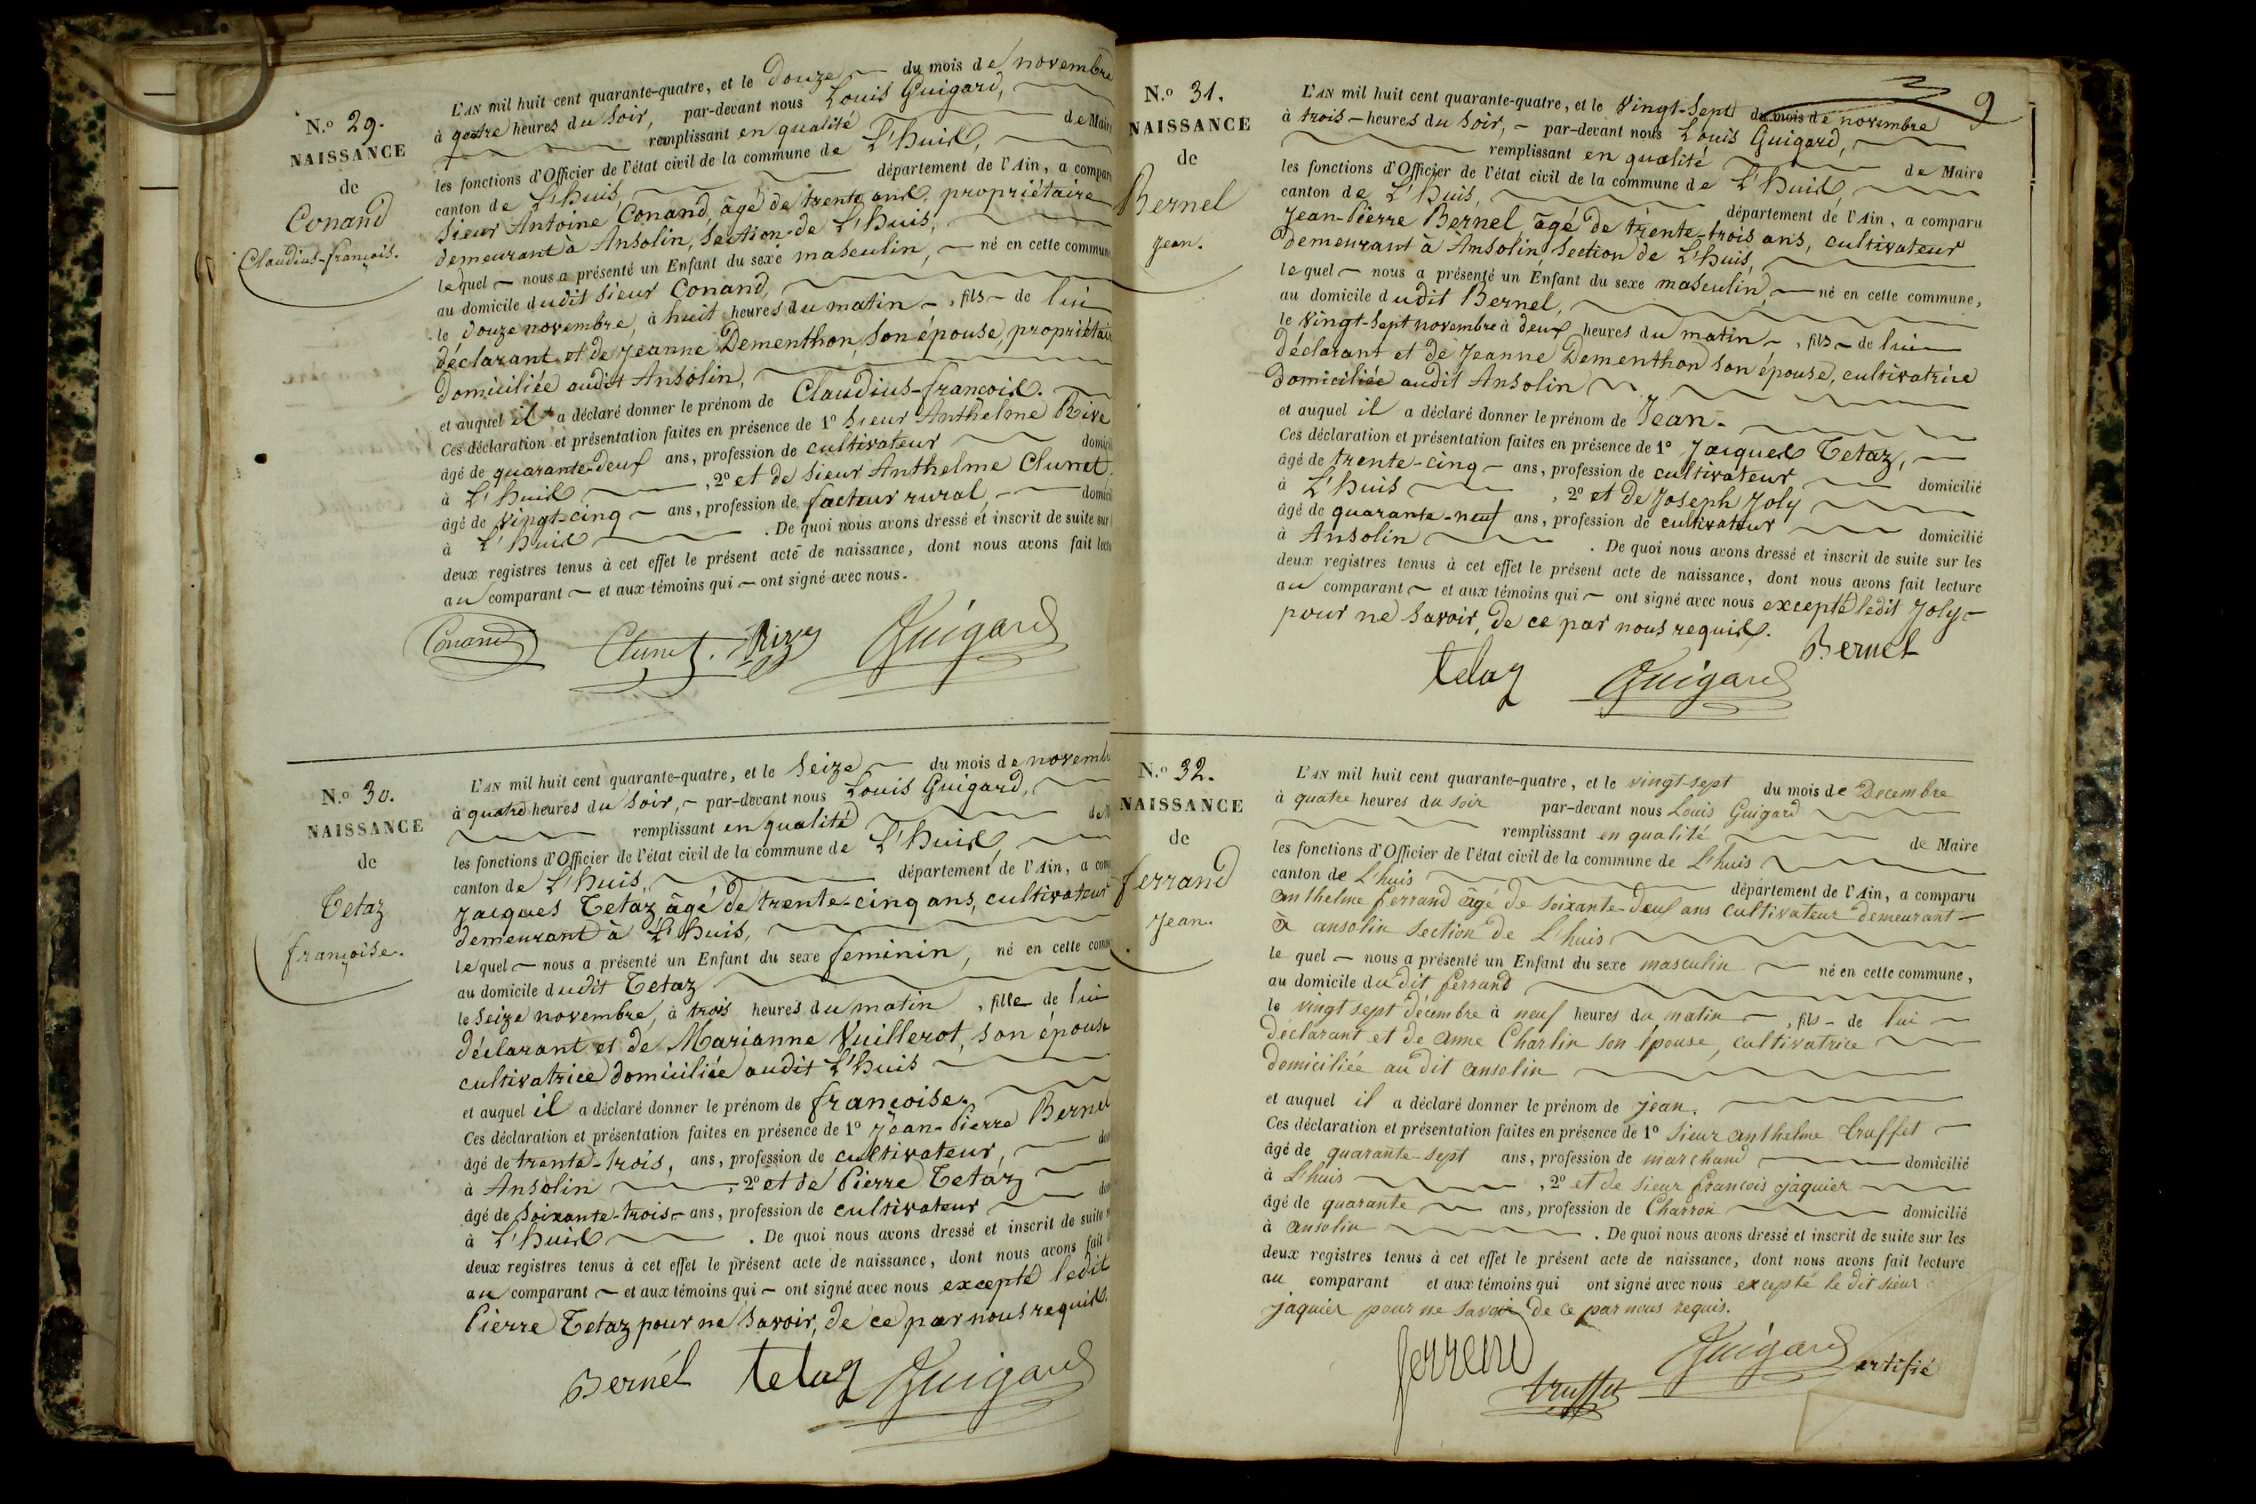 N.o 29.
NAISSANCE
de
Conand
Claudius-françois.
L'AN mil huit cent quarante-quatre, et le Douze du mois de novembre
à quatre heures du Soir, par-devant nous Louis Guigard,
remplissant en qualité de Maire
les fonctions d'Officier de l'état civil de la commune de L'huis,
canton de L'huis, département de l'Ain, a compar
Sieur Antoine Conand, âgé de trente ans, propriétaire
demeurant à Ansolin, Section de L'huis,
lequel nous a présenté un Enfant du sexe masculin, né en cette commune
au domicile dudit Sieur Conand,
le Douze novembre, à huit heures du matin, fils de lui
déclarant et de Jeanne Dementhon, Son épouse, propriétair
domiciliée audit Ansolin,
et auquel il a déclaré donner le prénom de Claudius-françois.
Ces déclaration et présentation faites en présence de 1o Sieur Anthelme Rive
âgé de quarante-deux ans, profession de cultivateur domici
à L'huis, 2o et de Sieur Anthelme Clunet,
âgé de Vingt-cinq ans, profession de facteur rural, domici
à L'huis. De quoi nous avons dressé et inscrit de suite sur
deux registres tenus à cet effet le présent acte de naissance, dont nous avons fait lectu
au comparant et aux témoins qui ont signé avec nous.
Conand Clunet. Rive Guigard
N.o 30.
NAISSANCE
de
Tetaz
françoise.
L'AN mil huit cent quarante-quatre, et le Seize du mois de novemb
à quatre heures du Soir, par-devant nous Louis Guigard,
remplissant en qualité de M
les fonctions d'Officier de l'état civil de la commune de L'huis,
canton de L'huis, département de l'Ain, a com
Jacques Tetaz, âgé de trente-cinq ans, cultivateur
demeurant à L'huis,
lequel nous a présenté un Enfant du sexe feminin, né en cette comm
au domicile dudit Tetaz
le Seize novembre, à trois heures du matin, fille de lui
déclarant et de Marianne Vuillerot, son épouse
cultivatrice domiciliée audit L'huis
et auquel il a déclaré donner le prénom de françoise.
Ces déclaration et présentation faites en présence de 1o Jean-Pierre Bernel
âgé de trente-trois, ans, profession de cultivateur, dom
à Ansolin, 2o et de Pierre Tetaz
âgé de Soixante-trois ans, profession de cultivateur dom
à L'huis. De quoi nous avons dressé et inscrit de suite s
deux registres tenus à cet effet le présent acte de naissance, dont nous avons fait l
au comparant et aux témoins qui ont signé avec nous excepté ledit
Pierre Tetaz pour ne Savoir, de ce par nous requis.
Bernel tetaz Guigard
9
N.o 31.
NAISSANCE
de
Bernel
Jean.
L'AN mil huit cent quarante-quatre, et le Vingt-Sept du mois de novembre
à trois heures du Soir, par-devant nous Louis Guigard,
remplissant en qualité de Maire
les fonctions d'Officier de l'état civil de la commune de L'huis,
canton de L'huis, département de l'Ain, a comparu
Jean-Pierre Bernel, âgé de trente-trois ans, cultivateur
demeurant à Ansolin, Section de L'huis,
lequel nous a présenté un Enfant du sexe masculin, né en cette commune,
au domicile dudit Bernel,
le Vingt-Sept novembre à deux heures du matin, fils de lui
déclarant et de Jeanne Dementhon son épouse, cultivatrice
domiciliée audit Ansolin
et auquel il a déclaré donner le prénom de Jean.
Ces déclaration et présentation faites en présence de 1o Jacques Tetaz,
âgé de trente-cinq ans, profession de cultivateur domicilié
à L'huis, 2o et de Joseph Joly
âgé de quarante-neuf ans, profession de cultivateur domicilié
à Ansolin. De quoi nous avons dressé et inscrit de suite sur les
deux registres tenus à cet effet le présent acte de naissance, dont nous avons fait lecture
au comparant et aux témoins qui ont signé avec nous excepté ledit Joly
pour ne Savoir, de ce par nous requis.
Bernel
tetaz Guigard
N.o 32.
NAISSANCE
de
ferrand
Jean.
L'AN mil huit cent quarante-quatre, et le vingt-sept du mois de Decembre
à quatre heures du soir par-devant nous Louis Guigard
remplissant en qualité de Maire
les fonctions d'Officier de l'état civil de la commune de L'huis
canton de L'huis département de l'Ain, a comparu
anthelme ferrand âgé de soixante-deux ans cultivateur demeurant
à ansolin section de L'huis
le quel nous a présenté un Enfant du sexe masculin né en cette commune,
au domicile dudit ferrand
le vingt sept décembre à neuf heures du matin, fils de lui
déclarant et de anne Charlin son épouse, cultivatrice
domiciliée au dit ansolin
et auquel il a déclaré donner le prénom de jean.
Ces déclaration et présentation faites en présence de 1o sieur anthelme truffet
âgé de quarante-sept ans, profession de marchand domicilié
à L'huis, 2o et de sieur françois jaquier
âgé de quarante ans, profession de Charron domicilié
à ansolin. De quoi nous avons dressé et inscrit de suite sur les
deux registres tenus à cet effet le présent acte de naissance, dont nous avons fait lecture
au comparant et aux témoins qui ont signé avec nous excepté le dit sieur
jaquier pour ne savoir de ce par nous requis.
ferrand truffet Guigard
ertifié